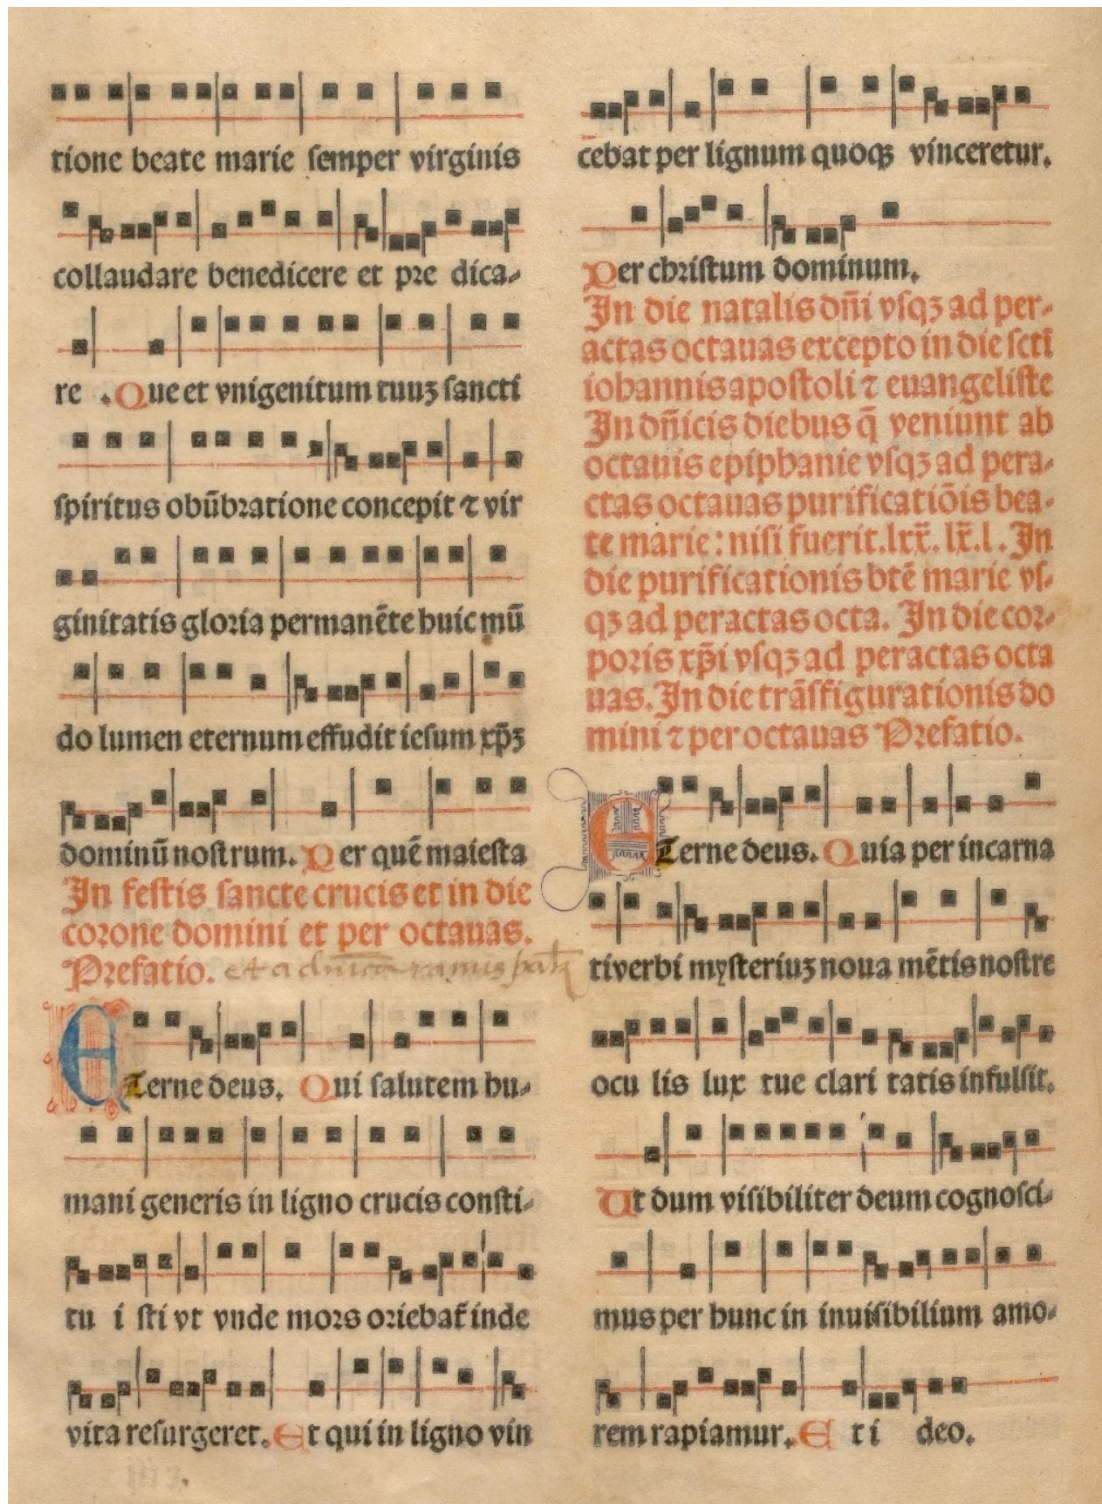 tione beate marie semper virginis
collaudare benedicere et pre dica-
re . Que et vnigenitum tuuʒ sancti
spiritus obūbratione concepit ⁊ vir
ginitatis gloria permanēte huic mū
do lumen eternum effudit iesum xp̄ʒ
dominū nostrum. Per quē maiesta
In festis sancte crucis et in die
corone domini et per octauas.
Prefatio. et a dnica ramis
ETerne deus. Qui salutem hu-
mani generis in ligno crucis consti-
tu i sti vt vnde mors oriebat̄ inde
vita resurgeret. Et qui in ligno vin
cebat per lignum quoqꝫ vinceretur.
Per christum dominum.
In die natalis dn̄i vsqʒ ad per-
actas octauas excepto in die scti
iohannis apostoli ⁊ euangeliste
In dn̄icis diebus q̄ veniunt ab
octauis epiphanie vsqʒ ad pera-
ctas octauas purificatiōis bea-
te marie: nisi fuerit .lxx̄. lx̄. l. In
die purificationis btē marie vs-
qʒ ad peractas octa. In die cor-
poris xp̄i vsqʒ ad peractas octa
uas. In die trāsfigurationis do
mini ⁊ per octauas Prefatio.
ETerne deus. Quia per incarna
ti verbi mysteriuʒ noua mētis nostre
ocu lis lux tue clari tatis infulsit.
Ut dum visibiliter deum cognosci-
mus per hunc in inuisibilium amo-
rem rapiamur. E t i deo.